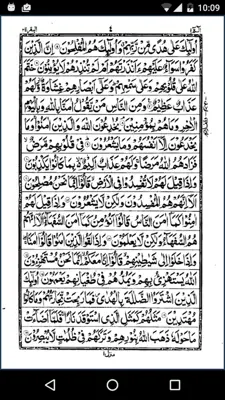 10:09
۴
اُولٰٓئِكَ عَلٰى هُدًى مِّنْ رَّبِّهِمْ وَاُولٰٓئِكَ هُمُ الْمُفْلِحُوْنَ اِنَّ الَّذِيْنَ
كَفَرُوْا سَوَآءٌ عَلَيْهِمْ ءَاَنْذَرْتَهُمْ اَمْ لَمْ تُنْذِرْهُمْ لَا يُؤْمِنُوْنَ خَتَمَ
اللّٰهُ عَلٰى قُلُوْبِهِمْ وَعَلٰى سَمْعِهِمْ وَعَلٰٓى اَبْصَارِهِمْ غِشَاوَةٌ وَّلَهُمْ
عَذَابٌ عَظِيْمٌ وَمِنَ النَّاسِ مَنْ يَّقُوْلُ اٰمَنَّا بِاللّٰهِ وَبِالْيَوْمِ
الْاٰخِرِ وَمَا هُمْ بِمُؤْمِنِيْنَ يُخٰدِعُوْنَ اللّٰهَ وَالَّذِيْنَ اٰمَنُوْا وَمَا
يَخْدَعُوْنَ اِلَّآ اَنْفُسَهُمْ وَمَا يَشْعُرُوْنَ فِيْ قُلُوْبِهِمْ مَّرَضٌ
فَزَادَهُمُ اللّٰهُ مَرَضًا وَلَهُمْ عَذَابٌ اَلِيْمٌ بِمَا كَانُوْا يَكْذِبُوْنَ
وَاِذَا قِيْلَ لَهُمْ لَا تُفْسِدُوْا فِي الْاَرْضِ قَالُوْٓا اِنَّمَا نَحْنُ مُصْلِحُوْنَ
اَلَآ اِنَّهُمْ هُمُ الْمُفْسِدُوْنَ وَلٰكِنْ لَّا يَشْعُرُوْنَ وَاِذَا قِيْلَ لَهُمْ
اٰمِنُوْا كَمَآ اٰمَنَ النَّاسُ قَالُوْٓا اَنُؤْمِنُ كَمَآ اٰمَنَ السُّفَهَآءُ اَلَآ اِنَّهُمْ
هُمُ السُّفَهَآءُ وَلٰكِنْ لَّا يَعْلَمُوْنَ وَاِذَا لَقُوا الَّذِيْنَ اٰمَنُوْا قَالُوْٓا اٰمَنَّا
وَاِذَا خَلَوْا اِلٰى شَيٰطِيْنِهِمْ قَالُوْٓا اِنَّا مَعَكُمْ اِنَّمَا نَحْنُ مُسْتَهْزِءُوْنَ
اَللّٰهُ يَسْتَهْزِئُ بِهِمْ وَيَمُدُّهُمْ فِيْ طُغْيَانِهِمْ يَعْمَهُوْنَ اُولٰٓئِكَ
الَّذِيْنَ اشْتَرَوُا الضَّلٰلَةَ بِالْهُدٰى فَمَا رَبِحَتْ تِّجَارَتُهُمْ وَمَا كَانُوْا
مُهْتَدِيْنَ مَثَلُهُمْ كَمَثَلِ الَّذِى اسْتَوْقَدَ نَارًا فَلَمَّآ اَضَآءَتْ
مَا حَوْلَهٗ ذَهَبَ اللّٰهُ بِنُوْرِهِمْ وَتَرَكَهُمْ فِيْ ظُلُمٰتٍ لَّا يُبْصِرُوْنَ
منزل ۱